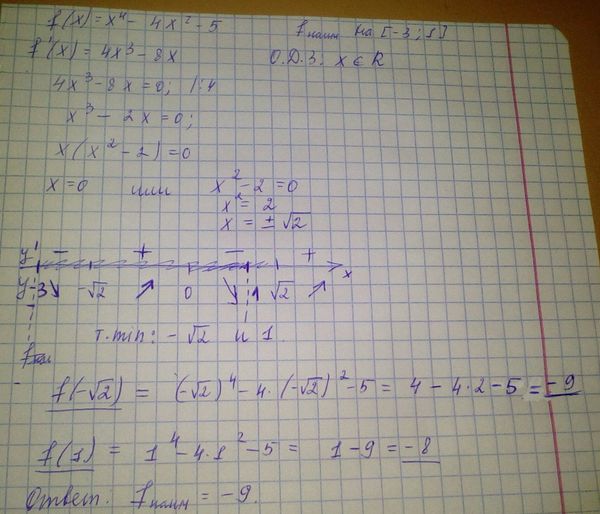 f(x)=x⁴- 4x²-5 fнаим на [-3;1]
f'(x)=4x³-8x О.Д.З. x∈R
4x³-8x=0; |:4
x³-2x=0;
x(x²-2)=0
x=0 или x²-2=0
x²=2
x=±√2
y' - + - +
x
y -3 ↘ -√2 ↗ 0 ↘ 1 √2 ↗
т.min: -√2 и 1.
f(-√2) = (-√2)⁴-4·(-√2)²-5= 4-4·2-5=-9
f(1) = 1⁴-4·1²-5= 1-9=-8
Ответ. fнаим = -9.